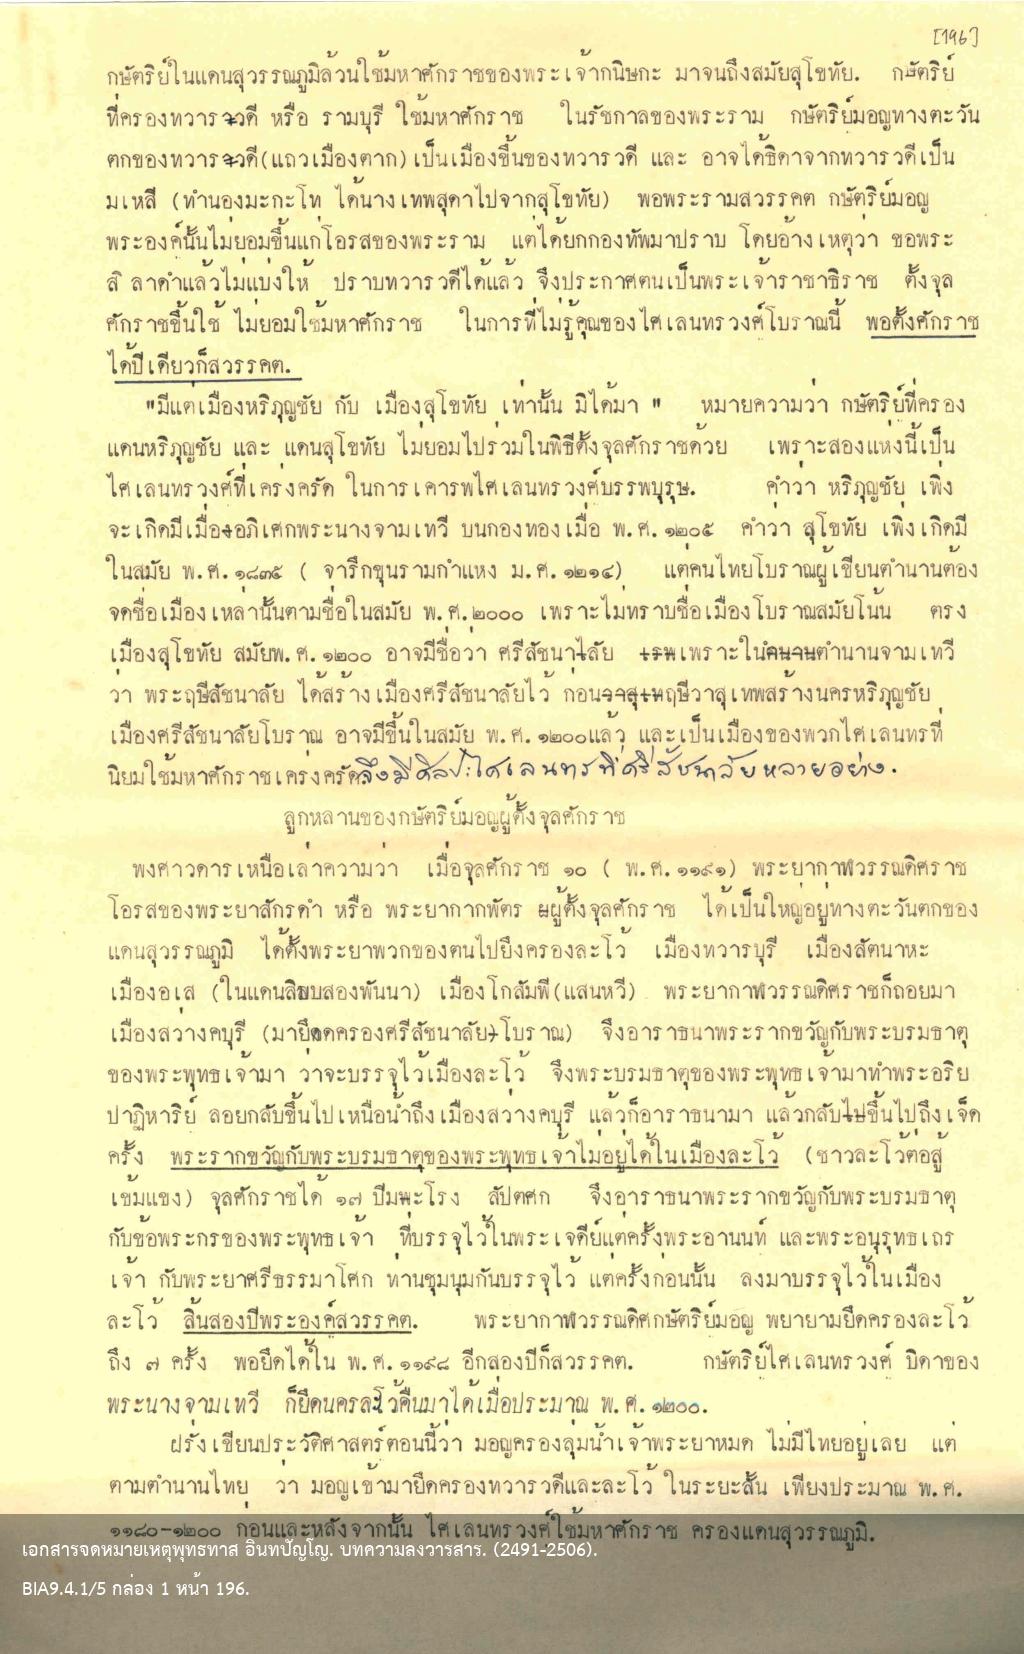 [196]
กษัตริย์ในแดนสุวรรณภูมิล้วนใช้มหาศักราชของพระเจ้ากนิษกะ มาจนถึงสมัยสุโขทัย. กษัตริย์
ที่ครองทวารวดี หรือ รามบุรี ใช้มหาศักราช ในรัชกาลของพระราม กษัตริย์มอญทางตะวัน
ตกของทวารวดี(แถวเมืองตาก)เป็นเมืองขึ้นของทวารวดี และ อาจได้ธิดาจากทวารวดีเป็น
มเหสี (ทำนองมะกะโท ได้นางเทพสุดาไปจากสุโขทัย) พอพระรามสวรรคต กษัตริย์มอญ
พระองค์นั้นไม่ยอมขึ้นแก่โอรสของพระราม แต่ได้ยกกองทัพมาปราบ โดยอ้างเหตุว่า ขอพระ
สิลาดำแล้วไม่แบ่งให้ ปราบทวารวดีได้แล้ว จึงประกาศตนเป็นพระเจ้าราชาธิราช ตั้งจุล
ศักราชขึ้นใช้ ไม่ยอมใช้มหาศักราช ในการที่ไม่รู้คุณของไศเลนทรวงศ์โบราณนี้ พอตั้งศักราช
ได้ปีเดียวก็สวรรคต.
"มีแต่เมืองหริภุญชัย กับ เมืองสุโขทัย เท่านั้น มิได้มา " หมายความว่า กษัตริย์ที่ครอง
แดนหริภุญชัย และ แดนสุโขทัย ไม่ยอมไปร่วมในพิธีตั้งจุลศักราชด้วย เพราะสองแห่งนี้เป็น
ไศเลนทรวงศ์ที่เคร่งครัด ในการเคารพไศเลนทรวงศ์บรรพบุรุษ. คำว่า หริภุญชัย เพิ่ง
จะเกิดมีเมื่ออภิเศกพระนางจามเทวี บนกองทองเมื่อ พ.ศ.๑๒๐๕ คำว่า สุโขทัย เพิ่งเกิดมี
ในสมัย พ.ศ.๑๘๓๕ ( จารึกขุนรามกำแหง ม.ศ.๑๒๑๔) แต่คนไทยโบราณผู้เขียนตำนานต้อง
จดชื่อเมืองเหล่านั้นตามชื่อในสมัย พ.ศ.๒๐๐๐ เพราะไม่ทราบชื่อเมืองโบราณสมัยโน้น ตรง
เมืองสุโขทัย สมัยพ.ศ.๑๒๐๐ อาจมีชื่อว่า ศรีสัชนาลัย เพราะในตำนานจามเทวี
ว่า พระฤษีสัชนาลัย ได้สร้างเมืองศรีสัชนาลัยไว้ ก่อนฤษีวาสุเทพสร้างนครหริภุญชัย
เมืองศรีสัชนาลัยโบราณ อาจมีขึ้นในสมัย พ.ศ.๑๒๐๐แล้ว และเป็นเมืองของพวกไศเลนทรที่
นิยมใช้มหาศักราชเคร่งครัดจึงมีศิลปะไศเลนทรที่ศรีสัชนาลัยหลายอย่าง.
ลูกหลานของกษัตริย์มอญผู้ตั้งจุลศักราช
พงศาวดารเหนือเล่าความว่า เมื่อจุลศักราช ๑๐ ( พ.ศ.๑๑๙๑) พระยากาฬวรรณดิศราช
โอรสของพระยาสักรดำ หรือ พระยากากพัตร ผู้ตั้งจุลศักราช ได้เป็นใหญ่อยู่ทางตะวันตกของ
แดนสุวรรณภูมิ ได้ตั้งพระยาพวกของตนไปยึงครองละโว้ เมืองทวารบุรี เมืองสัตนาหะ
เมืองอเส (ในแดนสิบสองพันนา) เมืองโกสัมพี(แสนหวี) พระยากาฬวรรณดิศราชก็ถอยมา
เมืองสว่างคบุรี (มายึดครองศรีสัชนาลัยโบราณ) จึงอาราธนาพระรากขวัญกับพระบรมธาตุ
ของพระพุทธเจ้ามา ว่าจะบรรจุไว้เมืองละโว้ จึงพระบรมธาตุของพระพุทธเจ้ามาทำพระอริย
ปาฏิหาริย์ ลอยกลับขึ้นไปเหนือน้ำถึงเมืองสว่างคบุรี แล้วก็อาราธนามา แล้วกลับขึ้นไปถึงเจ็ด
ครั้ง พระรากขวัญกับพระบรมธาตุของพระพุทธเจ้าไม่อยู่ได้ในเมืองละโว้ (ชาวละโว้ต่อสู้
เข้มแขง) จุลศักราชได้ ๑๗ ปีมะโรง สัปตศก จึงอาราธนาพระรากขวัญกับพระบรมธาตุ
กับข้อพระกรของพระพุทธเจ้า ที่บรรจุไว้ในพระเจดีย์แต่ครั้งพระอานนท์ และพระอนุรุทธเถร
เจ้า กับพระยาศรีธรรมาโศก ท่านชุมนุมกันบรรจุไว้ แต่ครั้งก่อนนั้น ลงมาบรรจุไว้ในเมือง
ละโว้ สิ้นสองปีพระองค์สวรรคต. พระยากาฬวรรณดิศกษัตริย์มอญ พยายามยึดครองละโว้
ถึง ๗ ครั้ง พอยึดได้ใน พ.ศ.๑๑๙๘ อีกสองปีก็สวรรคต. กษัตริย์ไศเลนทรวงศ์ บิดาของ
พระนางจามเทวี ก็ยึดนครละโว้คืนมาได้เมื่อประมาณ พ.ศ.๑๒๐๐.
ฝรั่งเขียนประวัติศาสตร์ตอนนี้ว่า มอญครองลุ่มน้ำเจ้าพระยาหมด ไม่มีไทยอยู่เลย แต่
ตามตำนานไทย ว่า มอญเข้ามายึดครองทวารวดีและละโว้ ในระยะสั้น เพียงประมาณ พ.ศ.
๑๑๘๐-๑๒๐๐ ก่อนและหลังจากนั้น ไศเลนทรวงศ์ใช้มหาศักราช ครองแดนสุวรรณภูมิ.
เอกสารจดหมายเหตุพุทธทาส อินทปัญโญ. บทความลงวารสาร. (2491-2506).
BIA9.4.1/5 กล่อง 1 หน้า 196.